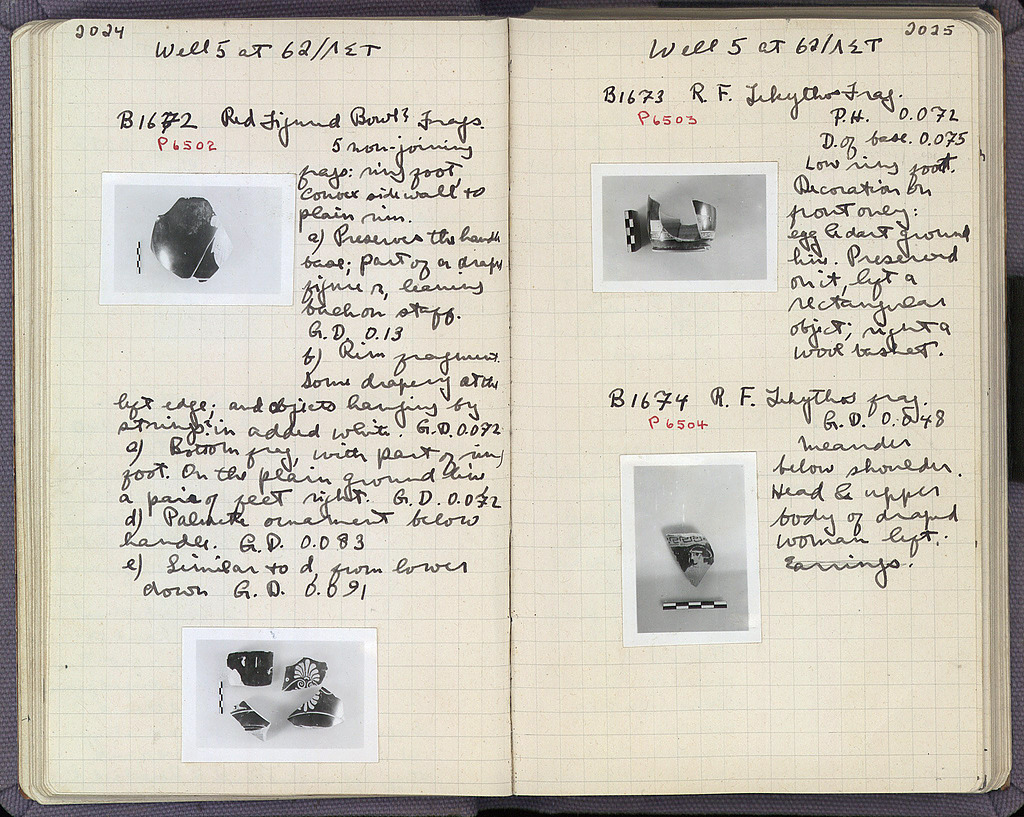 2024
Well 5 at 62/ΛΣΤ
B1672 Red Figured Bowl? Frags.
P6502
5 non-joining
frags: ring foot,
convex side wall to
plain rim.
a) Preserves the handle
base; part of a draped
figure r, leaning
back on staff.
G.D. 0.13
b) Rim fragment.
Some drapery at the
left edge; and objects hanging by
strings: in added white. G.D. 0.072
c) Bottom frag, with part of ring
foot. On the plain ground line
a pair of feet right. G.D. 0.072
d) Palmette ornament below
handle. G.D. 0.083
e) Similar to d, from lower
down G.D. 0.091
2025
Well 5 at 62/ΛΣΤ
B1673 R.F. Lekythos Frag.
P6503
P.H. 0.072
D. of base. 0.075
Low ring foot.
Decoration on
front only:
egg & dart ground
line. Preserved
on it, left a
rectangular
object; right a
wool basket.
B1674 R.F. Lekythos frag.
P6504
G.D. 0.048
Meander
below shoulder.
Head & upper
body of draped
woman left.
Earrings.